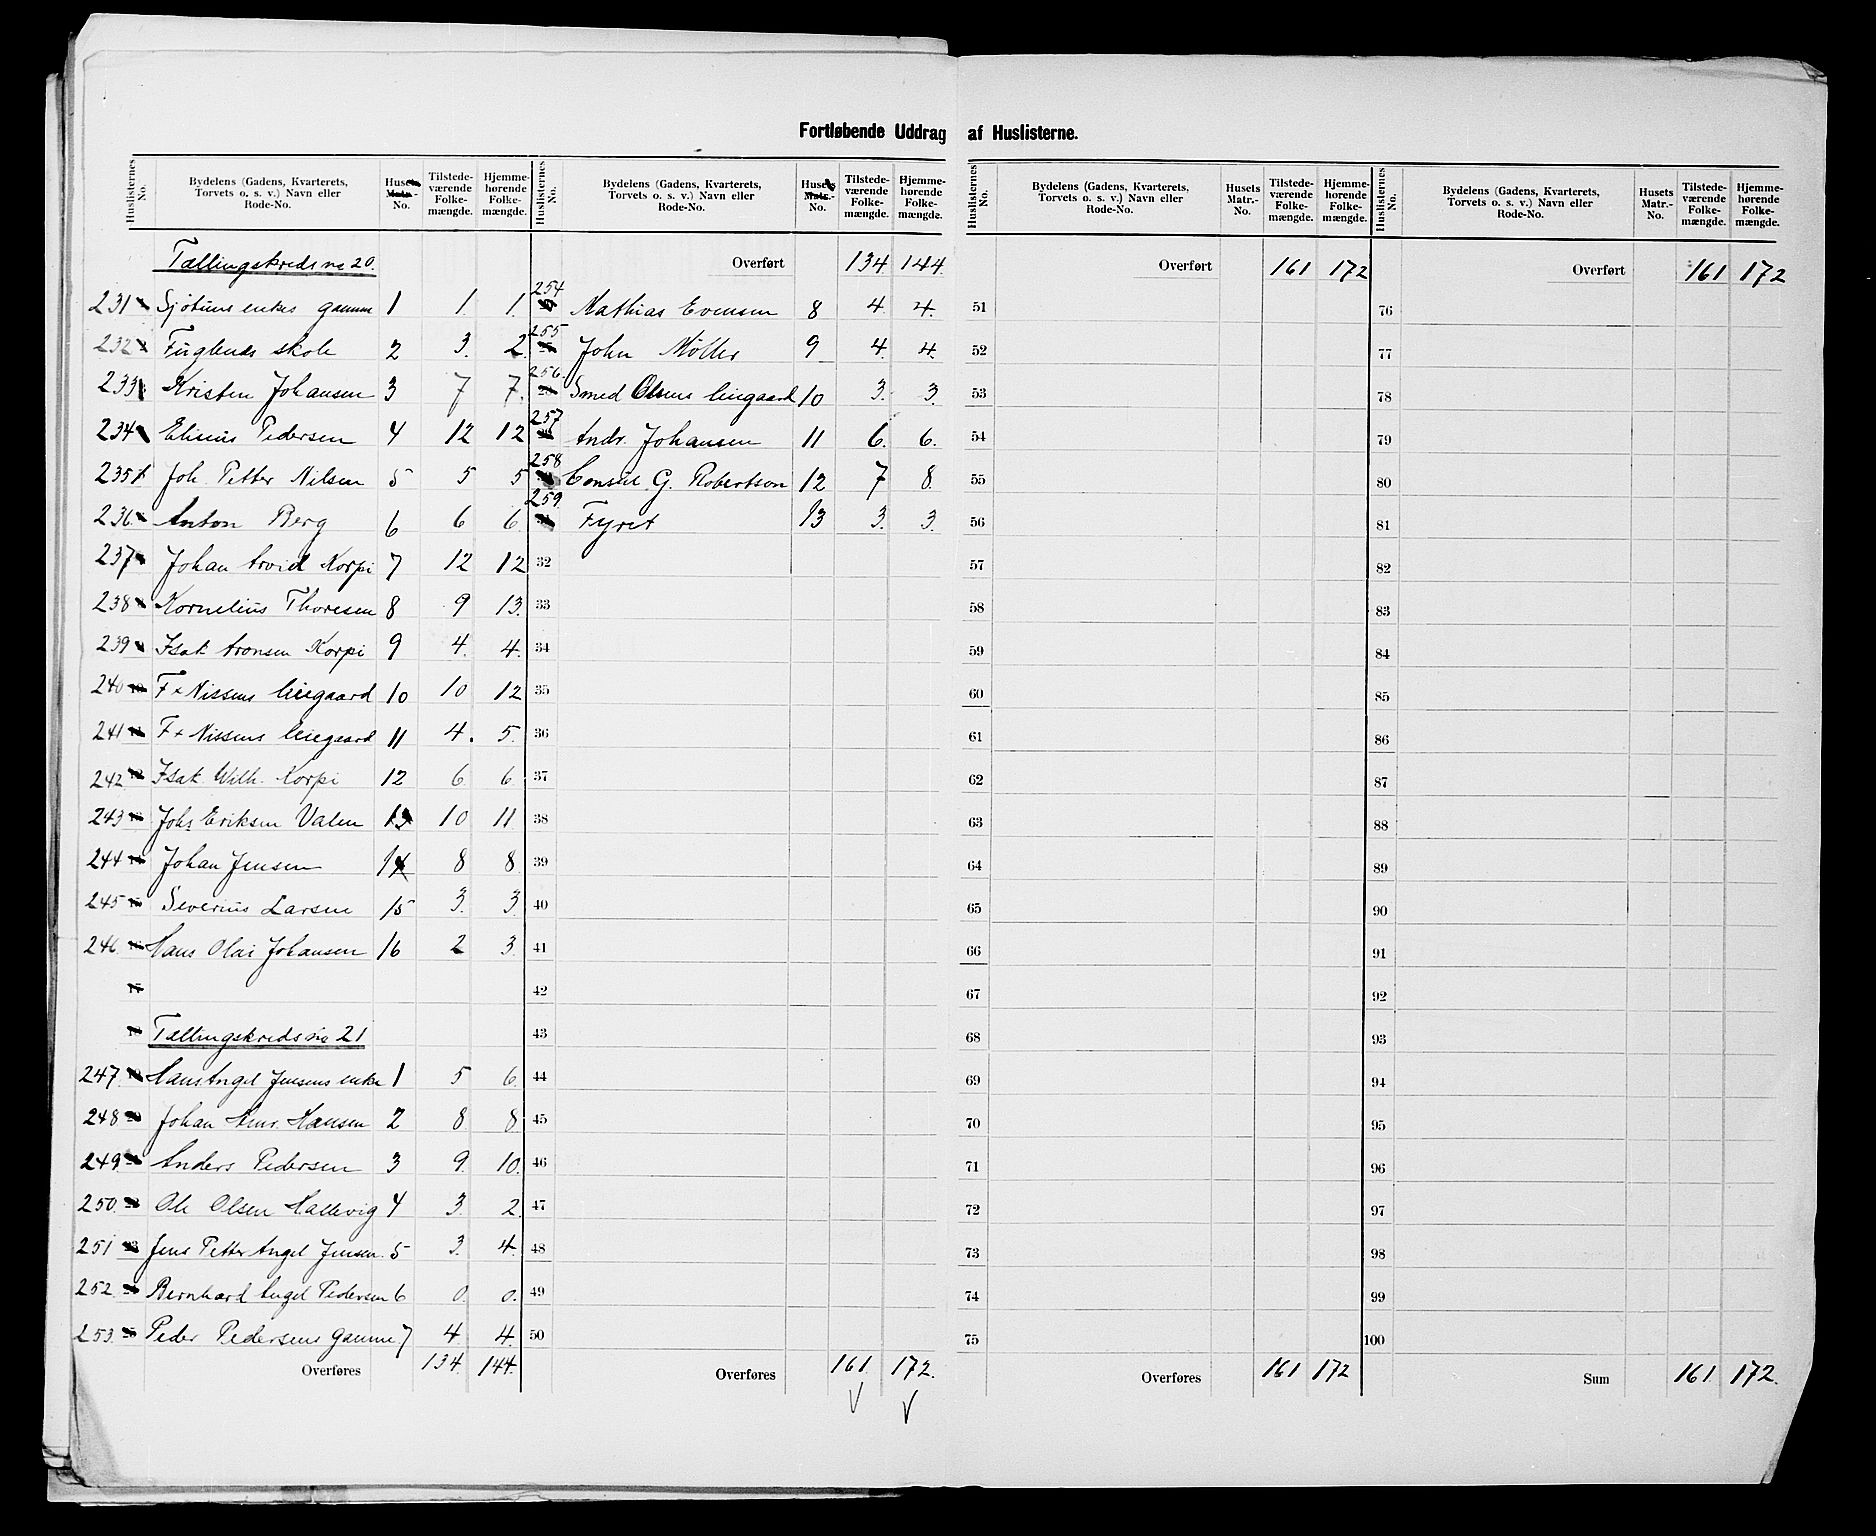 Fortløbende Uddrag af Huslisterne.
Huslisternes No. | Bydelens (Gadens, Kvarterets, Torvets o. s. v.) Navn eller Rode-No. | Husets Matr.-No. | Tilstedeværende Folkemængde. | Hjemmehørende Folkemængde.
Tællingskreds no 20.
231 Sjøtuns enkes gamme 1 1. 1.
232 Fuglenes skole 2 3. 2.
233 Kristen Johansen 3 7 7.
234 Eliseus Pedersen 4 12 12
235 Joh. Petter Nilsen 5 5 5
236 Anton Berg 6 6 6.
237 Johan Arvid Korpi 7 12 12
238 Kornelius Thoresen 8 9 13.
239 Isak Aronsen Korpi 9 4. 4.
240 F. Nissens leiegaard 10 10 12
241 F. Nissens leiegaard 11 4. 5.
242 Isak Wilh. Korpi 12 6 6
243 Johs Eriksen Valen 13 10 11
244 Johan Jensen 14 8 8
245 Severius Larsen 15 3. 3
246 Hans Olai Johansen 16 2 3
17
Tællingskreds no 21
247 Hans Angel Jensens enke 1 5 6
248 Johan Henr. Hansen 2 8 8
249 Anders Pedersen 3 9. 10.
250. Ole Olsen Hallevig 4 3. 2
251 Jens Petter Angel Jensen. 5 3. 4.
252. Bernhard Angel Pedersen 6 0. 0.
253. Peder Pedersens gamme 7 4. 4.
Overføres 134. 144.
Huslisternes No. | Bydelens (Gadens, Kvarterets, Torvets o. s. v.) Navn eller Rode-No. | Husets Matr.-No. | Tilstedeværende Folkemængde. | Hjemmehørende Folkemængde.
Overført 134 144.
254 Mathias Evensen 8 4. 4.
255 John Møller 9 4. 4.
256. Smed Olsens leiegaard 10 3. 3.
257 Andr. Johansen 11 6. 6.
258 Consul G. Robertson 12 7 8.
259. Fyret 13 3. 3.
32
33
34
35
36
37
38
39
40
41
42
43
44
45
46
47
48
49
50
Overføres 161. 172.
Huslisternes No. | Bydelens (Gadens, Kvarterets, Torvets o. s. v.) Navn eller Rode-No. | Husets Matr.-No. | Tilstedeværende Folkemængde. | Hjemmehørende Folkemængde.
Overført 161 172
51
52
53
54
55
56
57
58
59
60
61
62
63
64
65
66
67
68
69
70
71
72
73
74
75
Overføres 161 172
Huslisternes No. | Bydelens (Gadens, Kvarterets, Torvets o. s. v.) Navn eller Rode-No. | Husets Matr.-No. | Tilstedeværende Folkemængde. | Hjemmehørende Folkemængde.
Overført 161 172
76
77
78
79
80
81
82
83
84
85
86
87
88
89
90
91
92
93
94
95
96
97
98
99
100
Sum 161. 172.